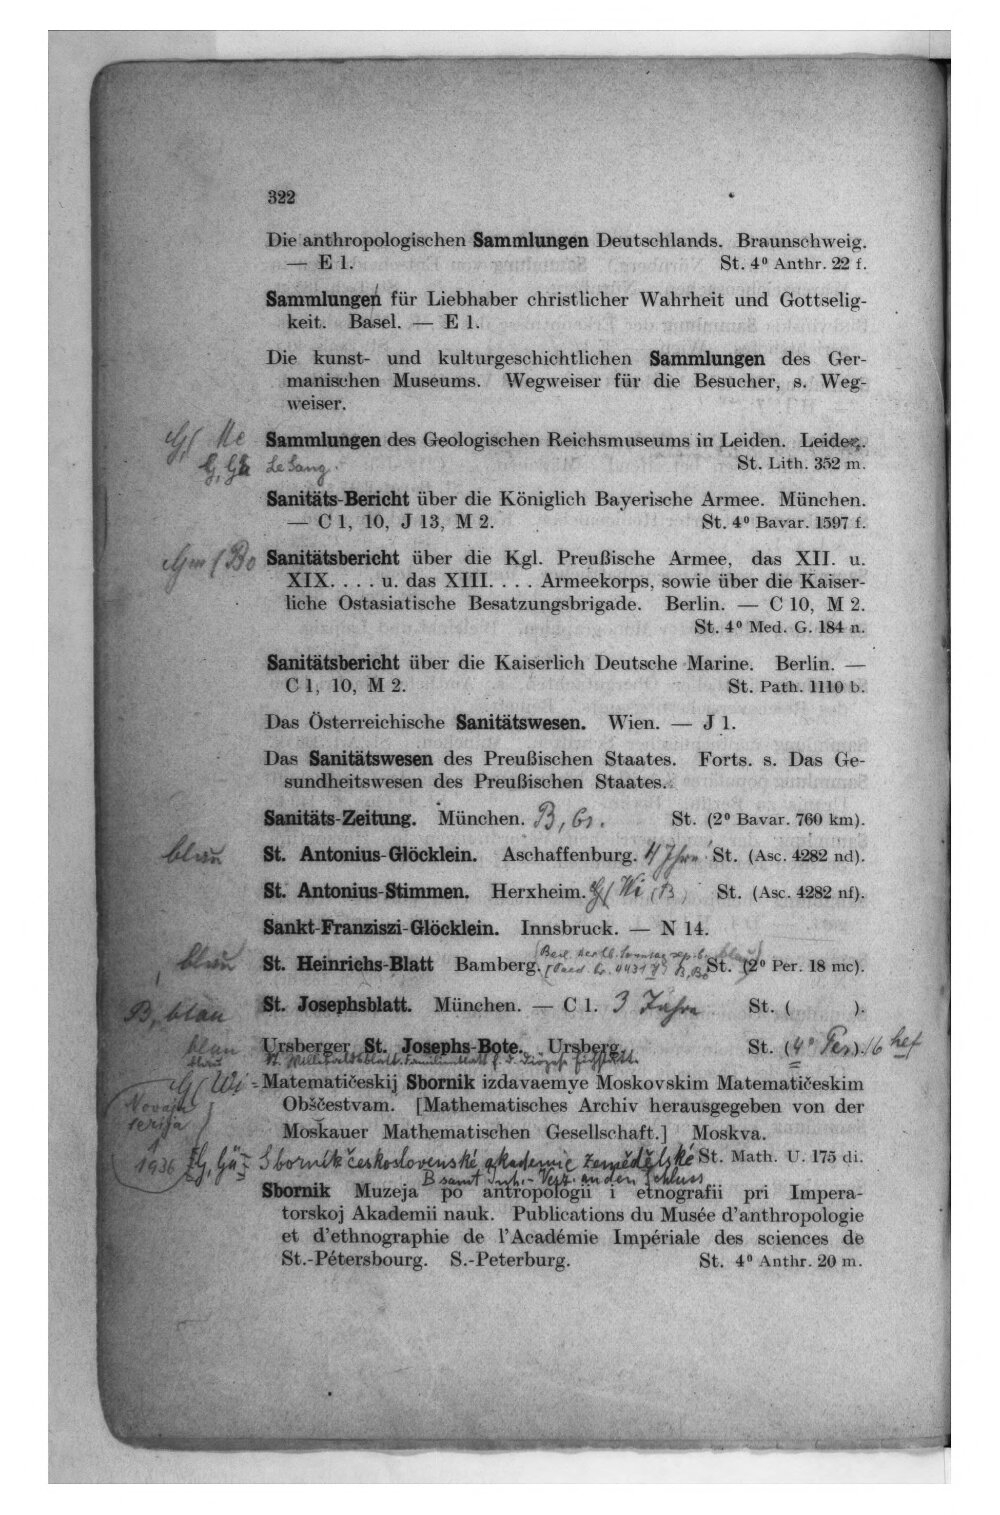 322
Die anthropologischen Sammlungen Deutschlands. Braunschweig.
— E 1. St. 4⁰ Anthr. 22 f.
Sammlungen für Liebhaber christlicher Wahrheit und Gottselig-
keit. Basel. — E 1.
Die kunst- und kulturgeschichtlichen Sammlungen des Ger-
manischen Museums. Wegweiser für die Besucher, s. Weg-
weiser.
Sammlungen des Geologischen Reichsmuseums in Leiden. Leiden.
G, Gä St. Lith. 352 m.
Sanitäts-Bericht über die Königlich Bayerische Armee. München.
— C 1, 10, J 13, M 2. St. 4⁰ Bavar. 1597 f.
Bo Sanitätsbericht über die Kgl. Preußische Armee, das XII. u.
XIX. . . . u. das XIII. . . . Armeekorps, sowie über die Kaiser-
liche Ostasiatische Besatzungsbrigade. Berlin. — C 10, M 2.
St. 4⁰ Med. G. 184 n.
Sanitätsbericht über die Kaiserlich Deutsche Marine. Berlin. —
C 1, 10, M 2. St. Path. 1110 b.
Das Österreichische Sanitätswesen. Wien. — J 1.
Das Sanitätswesen des Preußischen Staates. Forts. s. Das Ge-
sundheitswesen des Preußischen Staates.
Sanitäts-Zeitung. München. B, br. St. (2⁰ Bavar. 760 km).
blau St. Antonius-Glöcklein. Aschaffenburg. 4 Jahre St. (Asc. 4282 nd).
St. Antonius-Stimmen. Herxheim. Wi (B) St. (Asc. 4282 nf).
Sankt-Franziszi-Glöcklein. Innsbruck. — N 14.
blau St. Heinrichs-Blatt Bamberg. St. (2⁰ Per. 18 mc).
B, blau St. Josephsblatt. München. — C 1. 3 Jahre St. ( ).
blau Ursberger St. Josephs-Bote. Ursberg. St. (4⁰ Per.) 16 hef
blau St. Willibaldsblatt. Familienblatt f. d. Diözese Eichstätt.
Wi Matematičeskij Sbornik izdavaemye Moskovskim Matematičeskim
Novaja Obščestvam. [Mathematisches Archiv herausgegeben von der
serija Moskauer Mathematischen Gesellschaft.] Moskva.
1936 G, Gä Sborník československé akademie zemědělské St. Math. U. 175 di.
B samt Inh.-Verz. an den Schluss
Sbornik Muzeja po antropologii i etnografii pri Impera-
torskoj Akademii nauk. Publications du Musée d'anthropologie
et d'ethnographie de l'Académie Impériale des sciences de
St.-Pétersbourg. S.-Peterburg. St. 4⁰ Anthr. 20 m.